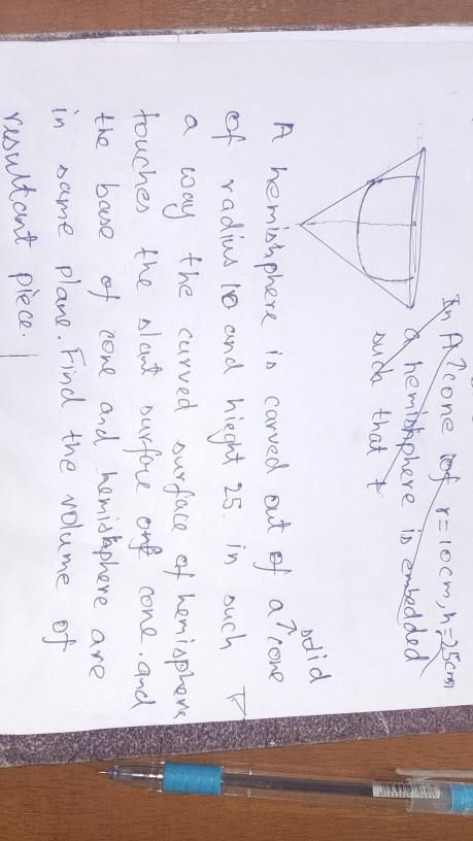 In A cone of r=10cm, h=25cm
a hemishphere is embedded
such that t
solid
A hemishphere is carved out of a cone
of radius 10 and hieght 25 in such
a way the curved surface of hemisphere
touches the slant surface of cone. and
the base of cone and hemishphere are
in same plane. Find the volume of
resultant piece.